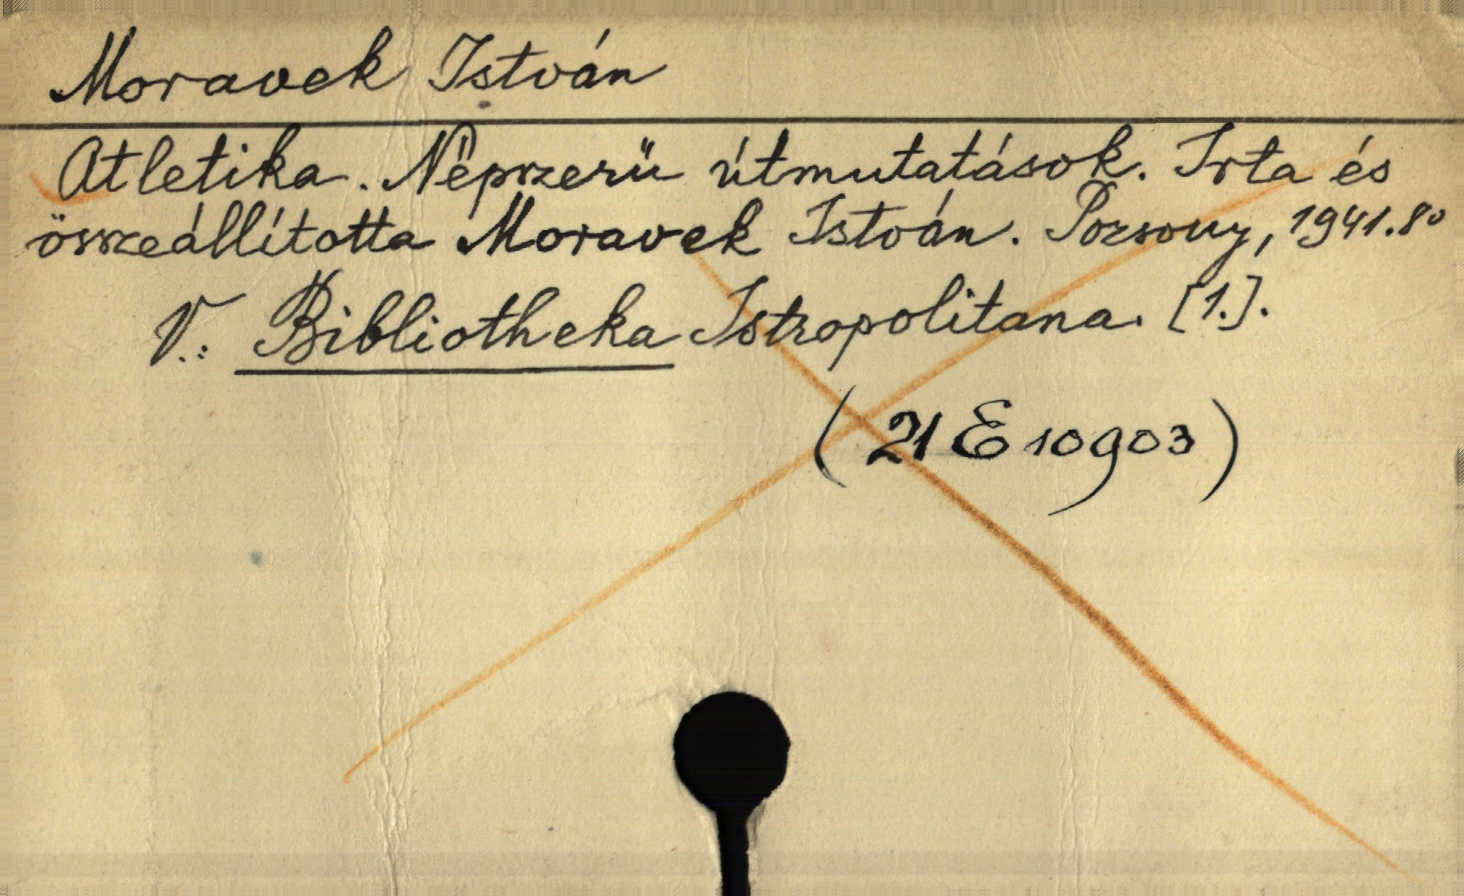 Moravek István
Atletika. Népszerü útmutatások. Irta és
összeállította Moravek István. Pozsony, 1941. 8°
V.: Bibliotheka Istropolitana. [1.].
(21 E 10903)